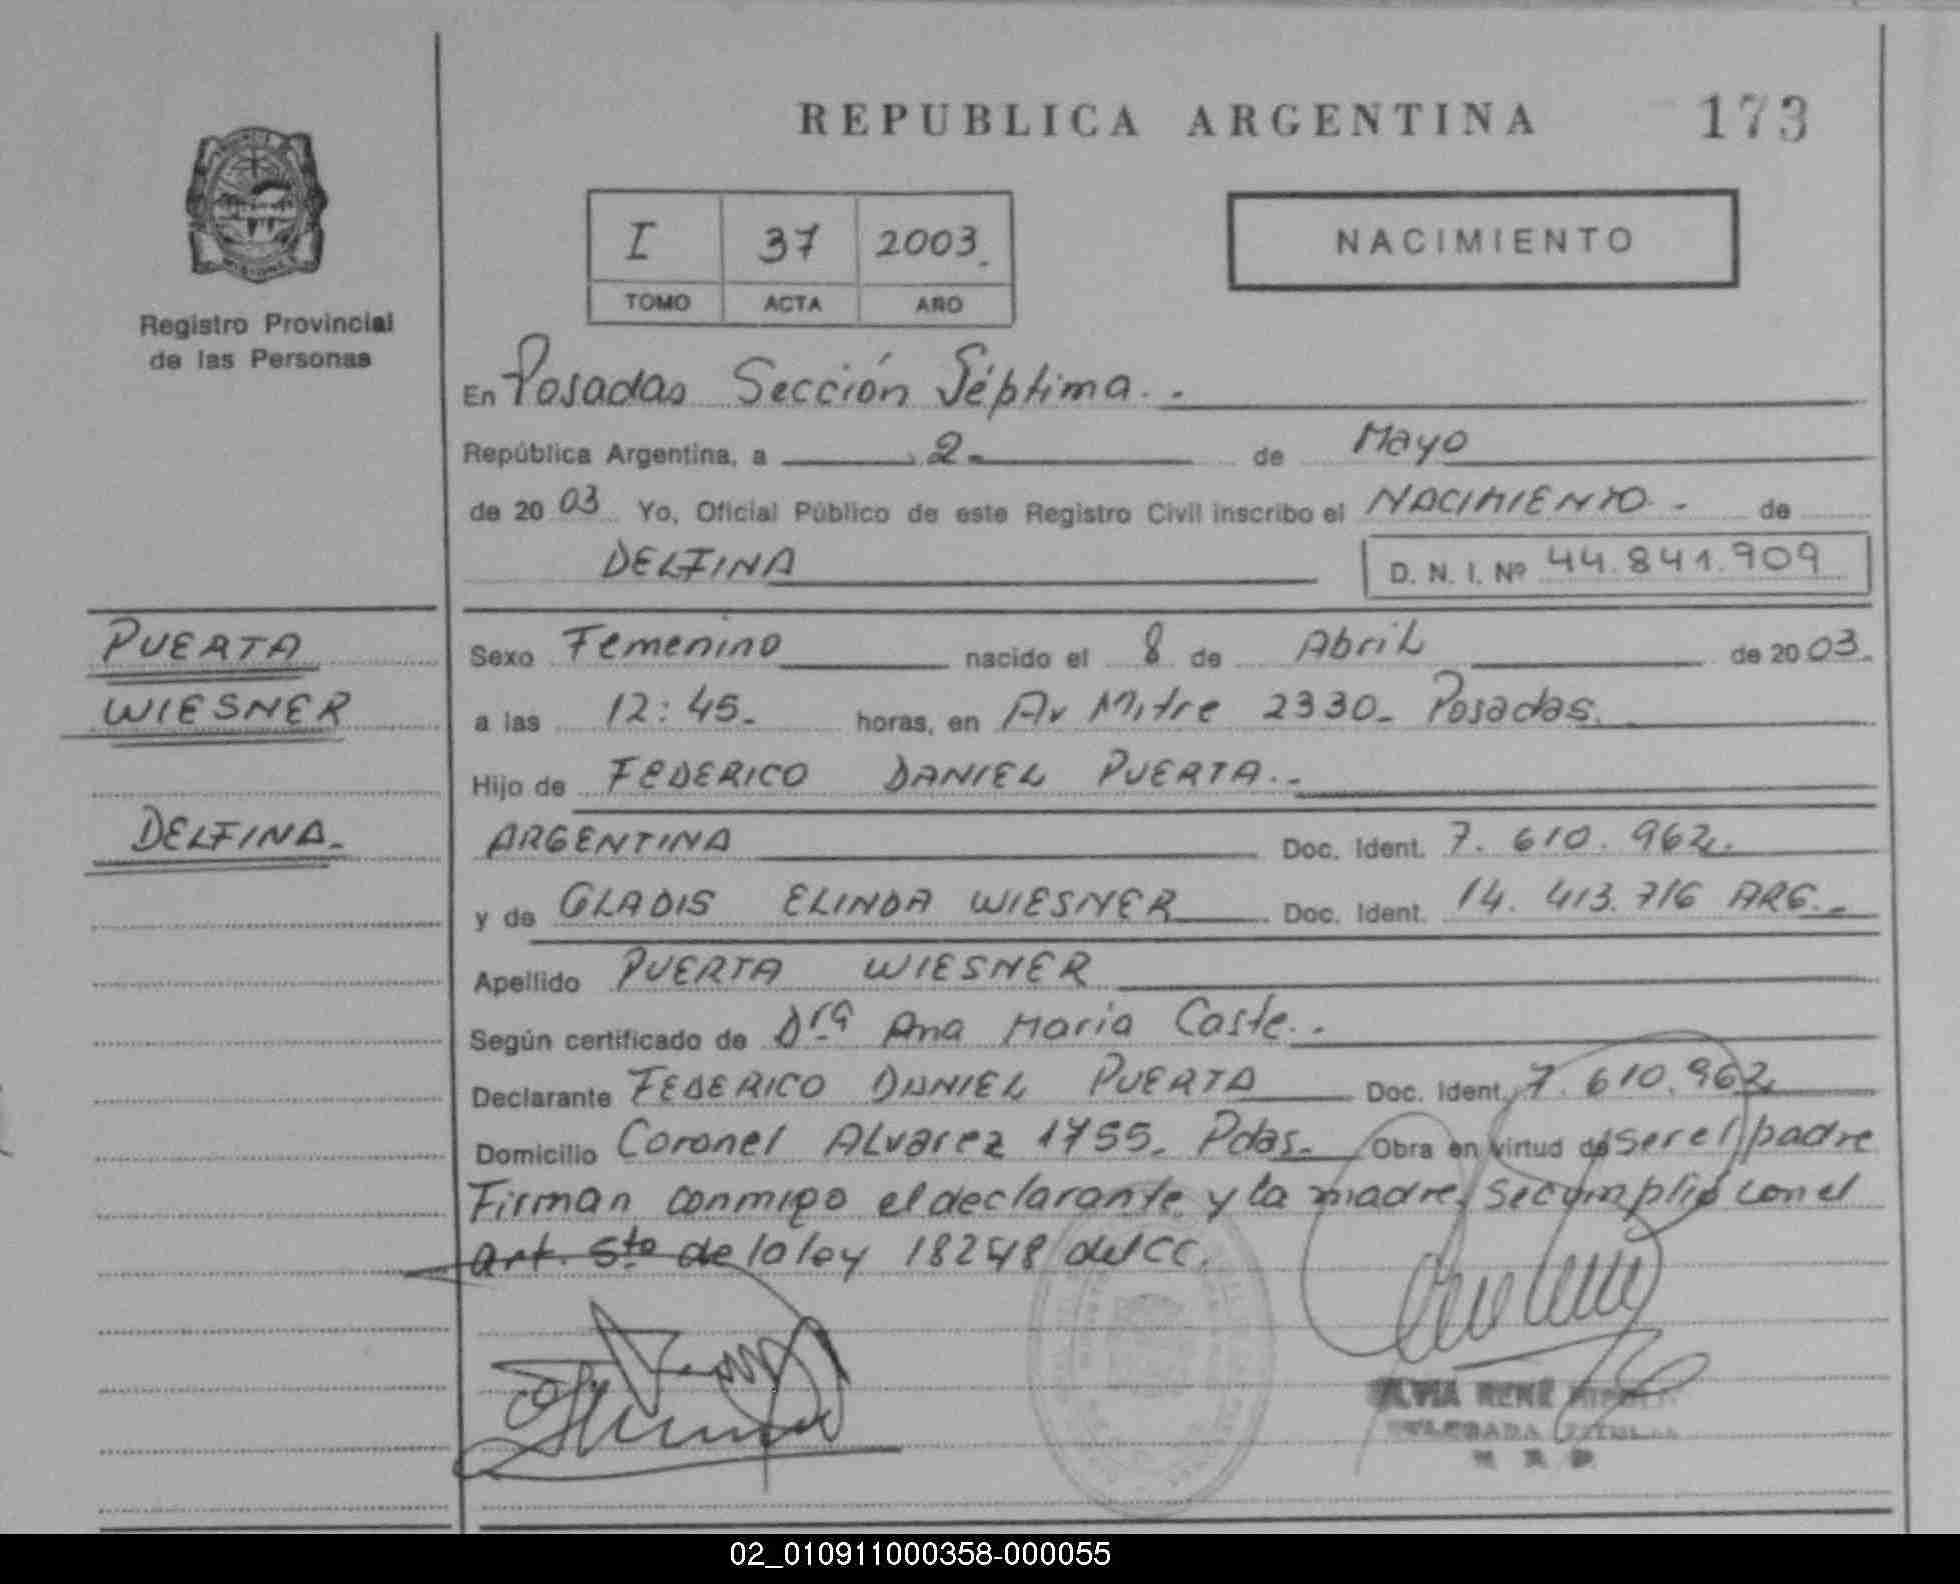 REPUBLICA ARGENTINA 173
I 37 2003.
TOMO ACTA AÑO
NACIMIENTO
Registro Provincial
de las Personas
En Posadas Sección Séptima.
República Argentina, a 2 de Mayo
de 2003 Yo, Oficial Público de este Registro Civil inscribo el NACIMIENTO de
DELFINA D. N. I. Nº 44.841.909
PUERTA
WIESNER
DELFINA.
Sexo Femenino nacido el 8 de Abril de 2003.
a las 12:45. horas, en Av Mitre 2330. Posadas.
Hijo de FEDERICO DANIEL PUERTA.
ARGENTINA Doc. Ident. 7.610.962.
y de GLADIS ELINDA WIESNER Doc. Ident. 14.413.716 ARG.
Apellido PUERTA WIESNER
Según certificado de Drª Ana Maria Caste.
Declarante FEDERICO DANIEL PUERTA Doc. Ident. 7.610.962
Domicilio Coronel Alvarez 1755. Pdas. Obra en virtud de ser el padre
Firman conmigo el declarante y la madre, se cumplió con el
art. 5to de la ley 18248 del CC.
RENÉ
02_010911000358-000055